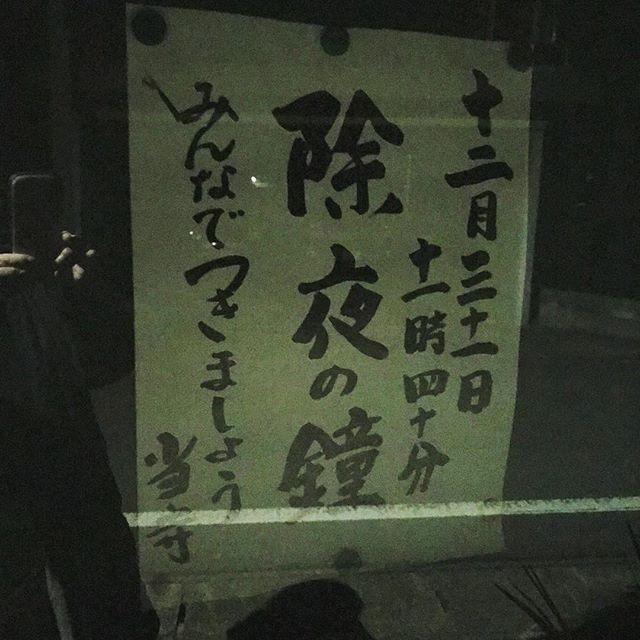 十二月三十一日
十一時四十分
除夜の鐘
みんなでつきましょう
当寺